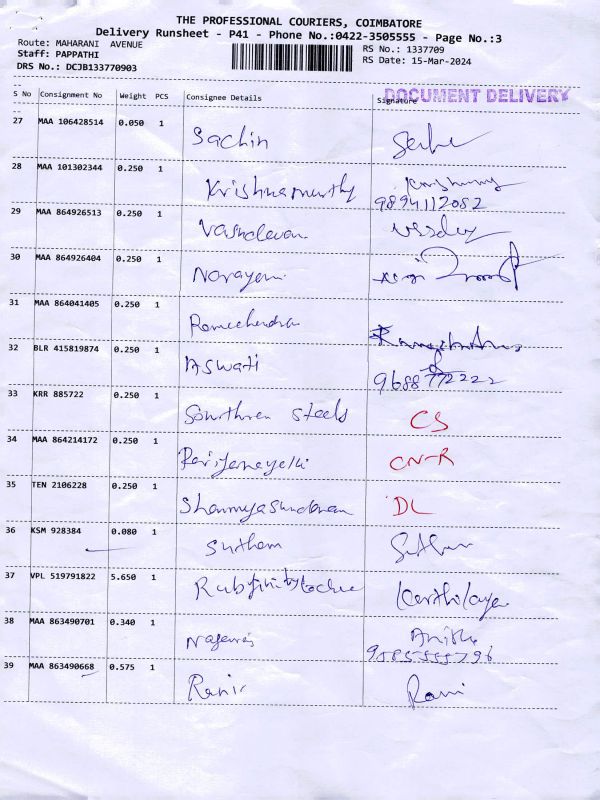 THE PROFESSIONAL COURIERS, COIMBATORE
Delivery Runsheet - P41 - Phone No.:0422-3505555 - Page No.:3
Route: MAHARANI AVENUE RS No.: 1337709
Staff: PAPPATHI RS Date: 15-Mar-2024
DRS No.: DCJB133770903
DOCUMENT DELIVERY
S No Consignment No Weight PCS Consignee Details Signature
27 MAA 106428514 0.050 1 Sachin
28 MAA 101302344 0.250 1 Krishnamurthy
9894112082
29 MAA 864926513 0.250 1 Vasudevan
30 MAA 864926404 0.250 1 Narayani
31 MAA 864041405 0.250 1 Ramachandra
32 BLR 415819874 0.250 1 Aswati
9688772222
33 KRR 885722 0.250 1 Sowthren steels CS
34 MAA 864214172 0.250 1 CN-R
35 TEN 2106228 0.250 1 DL
36 KSM 928384 0.080 1 Sutham
37 VPL 519791822 5.650 1
38 MAA 863490701 0.340 1
39 MAA 863490668 0.575 1 Rani Rani